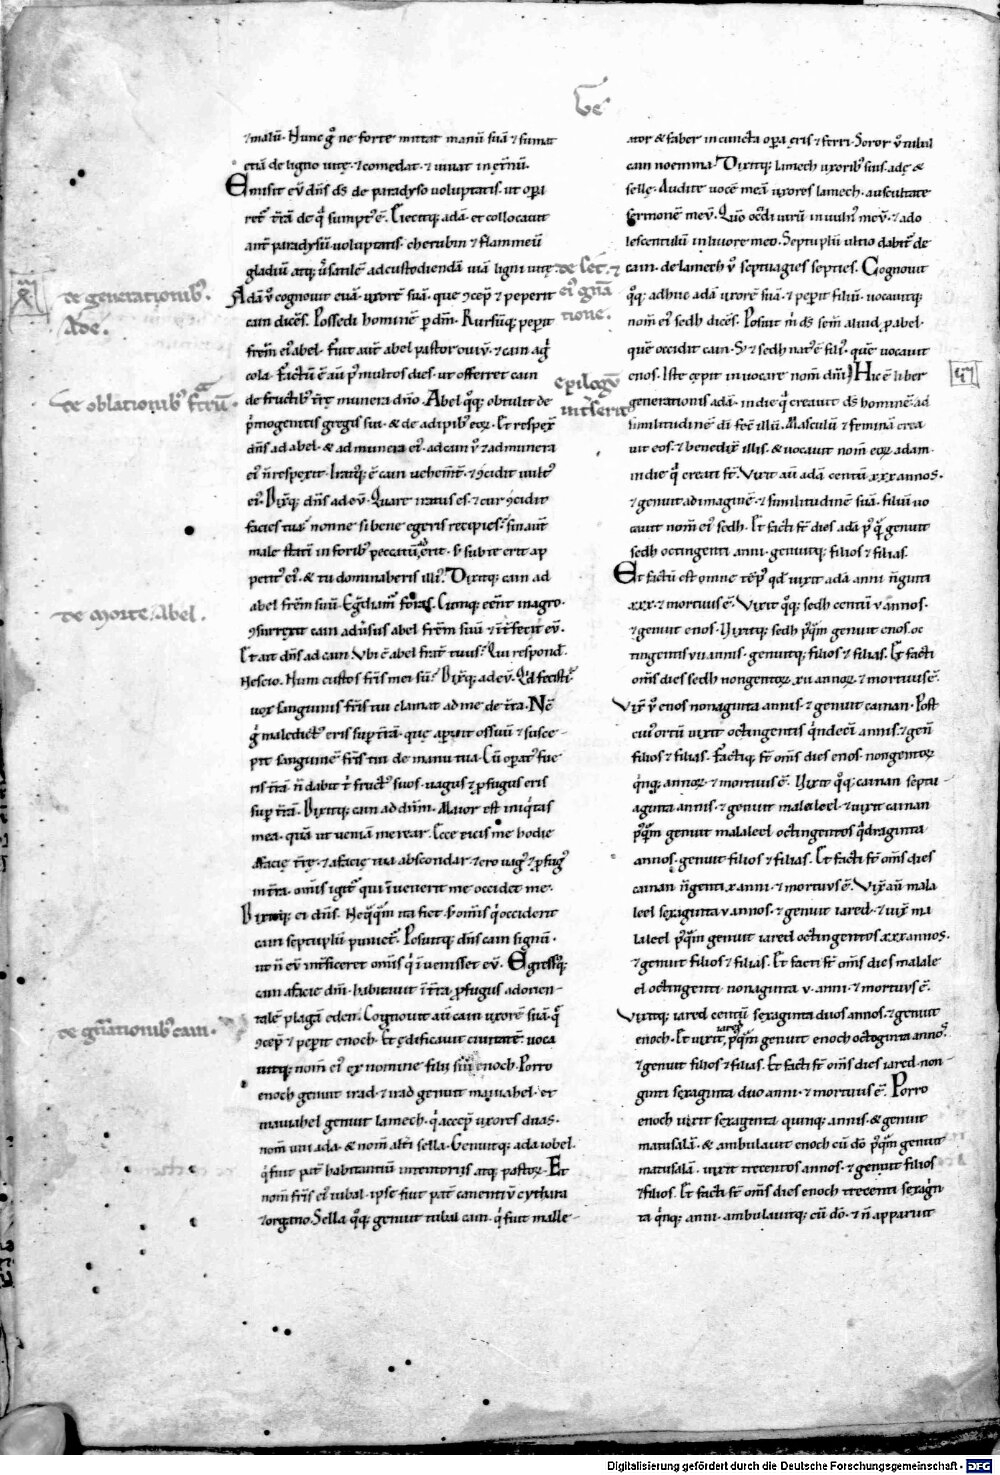 Ge
⁊ malū. Nunc g̊ ne forte mittat manū suā ⁊ sumat
etiā de ligno uitę. ⁊ comedat. ⁊ uiuat in et̄nū.
Emisit eū dn̄s ds̄ de paradyso voluptatis. ut opa
ret̄ t̄rā de q̄ sumpt᷒ ē. Eiecitq; adā. et collocauit
ant̄ paradysū uoluptatis. cherubin ⁊ flammeū
gladiū atq; ūsatilē ad custodiendā uiā ligni uitę.
Adā ū cognouit euā. uxorē suā. que ꝯcep̄ ⁊ peperit
cain dicēs. Possedi hominē p dm̄. Rursūq; peperit
fr̄em ei᷒ abel. Fuit aut̄ abel pastor ouiū. ⁊ cain ag̊
cola. Factū ē aū p᷒ multos dies. ut offerret cain
de fructib᷒ t̄rę munera dn̄o. Abel qq; obtulit de
p̊mogenitis gregis sui. & de adipib᷒ eoꝝ. Et respex̄
dn̄s ad abel. & ad munera ei᷒. ad cain ū ⁊ ad munera
ei᷒ n̄ respexit. Iratq; ē cain uehem̄t̄. ⁊ ꝯcidit uult᷒
ei᷒. Dix̄q; dn̄s ad eū. Quare iratus es. ⁊ cur ꝯcidit
facies tua. nonne si bene egeris recipies. sin aut̄
male statī in forib᷒ peccatū aderit. s̄ sub te erit ap
petit᷒ ei᷒. & tu dominaberis illi᷒. Dixitq; cain ad
abel fr̄em suū. Egdiam᷒ foras. Cumq; eēnt in agro.
ꝯsurrexit cain aduīsus abel fr̄em suū ⁊ īt̄fecit eū.
Et ait dn̄s ad cain Vbi ē abel frat̄ tuus. Qui respond̄.
Nescio. Num custos fr̄is mei sū. Dix̄q; ad eū. Qd fecisti
uox sanguinis fr̄is tui clamat ad me de t̄ra. Nē
g̊ maledict᷒ eris sup t̄rā. que apuit os suū ⁊ susce-
pit sanguinē fr̄is tui de manu tua. Cū opat᷒ fue
ris t̄rā. n̄ dabit t̊ fruct᷒ suos. uagus ⁊ pfugus eris
sup t̄rā. Dixitq; cain ad dm̄. Maior est iniq̊tas
mea. quā ut ueniā merear. Ecce eicis me hodie
a facię t̄rę. ⁊ a facię tua abscondar. ⁊ ero uag᷒ ⁊ pfug᷒
in t̄ra. om̄is igit̄ qui īuenerit me occidet me.
Dixitq; ei dn̄s. Neq̄q̄m ita fiet. s̄ om̄is q̊ occiderit
cain septuplū puniet̄. Posuitq; dn̄s cain signū.
ut n̄ eū int̄ficeret om̄is q̊ īuenisset eū. Egressq;
cain a facie dn̄i. habitauit ī t̄ra pfugus ad orien-
talē plagā eden. Cognouit aū cain uxorē suā. q̄
ꝯcep̄ ⁊ peperit enoch. Et ędificauit ciuitatē. uoca
uitq; nom̄ ei᷒ ex nomine filii sui enoch. Porro
enoch genuit irad. ⁊ irad genuit mauiahel. et
mauiahel genuit lamech. q̊ accep̄ uxores duas.
nom̄ uni ada. & nom̄ alt̄i sella. Genuitq; ada iobel.
q̊ fuit pat̄ habitantiū in tentoriis atq; pastoꝝ. Et
nom̄ fr̄is ei᷒ iubal. ipse fuit pat̄ canentiū cythara
⁊ organo. Sella qq; genuit tubal cain. q̊ fuit malle-
ator & faber in cuncta opa eris ⁊ ferri. Soror ū tubal
cain noemma. Dixitq; lamech uxorib᷒ suis. adę &
sellę. Audite uocē meā uxores lamech. auscultate
sermonē meū. Qm̄ occidi uirū in uuln᷒ meū. ⁊ ado
lescentulū in liuore meo. Septuplū ultio dabit̄ de
cain. de lamech ū septuagies septies. Cognouit
qq; adhuc adā uxorē suā. ⁊ pepit filiū. uocauitq;
nom̄ ei᷒ sedh dicēs. Posuit m̊ ds̄ sem̄ aliud p abel.
quē occidit cain. S; ⁊ sedh nat᷒ ē fili᷒. quē uocauit
enos. Iste cępit inuocare nom̄ dn̄i. Hic ē liber
generationis adā. in die q̊ creauit ds̄ hominē. ad
similitudinē dī fec̄ illū. Masculū ⁊ feminā crea
uit eos. ⁊ benedix̄ illis. & uocauit nom̄ eoꝝ adam.
in die q̊ creati st̄. Vixit aū adā centū xxx annos.
⁊ genuit ad imaginē. ⁊ similitudinē suā. filiū uo
cauit nom̄ ei᷒ sedh. Et facti st̄ dies adā p᷒ q̄ genuit
sedh octingenti anni. genuitq; filios ⁊ filias.
Et factū est omne tēp᷒ qd̄ uixit adā anni n̄genti
xxx. ⁊ mortuus ē. Vixit qq; sedh centū v annos.
⁊ genuit enos. Vixitq; sedh p᷒q̄m genuit enos. oc
tingentis vii annis. genuitq; filios ⁊ filias. Et facti
om̄s dies sedh nongentoꝝ. xii annoꝝ. ⁊ mortuus ē.
Vix̄ ū enos nonaginta annis. ⁊ genuit cainan. Post
cui᷒ ortū uixit octingentis q̊ndecī annis. ⁊ gen̄
filios ⁊ filias. Factiq; st̄ om̄s dies enos. nongentoꝝ
q̊nq; annoꝝ. ⁊ mortuus ē. Vixit qq; cainan septu-
aginta annis. ⁊ genuit malaleel. ⁊ uixit cainan
p᷒q̄m genuit malaleel octingentos q̄draginta
annos. genuit filios ⁊ filias. Et facti st̄ om̄s dies
cainan n̄genti x anni. ⁊ mortuus ē. Vix̄ aū mala
leel sexaginta v annos. ⁊ genuit iared. ⁊ uix̄ ma
laleel p᷒q̄m genuit iared octingentos xxx annos.
⁊ genuit filios ⁊ filias. Et facti st̄ om̄s dies malale
el octingenti nonaginta v. anni. ⁊ mortuus ē.
Vixitq; iared centū sexaginta duos annos. ⁊ genuit
enoch. Et uixit iared p᷒q̄m genuit enoch octoginta annos.
⁊ genuit filios ⁊ filias. Et facti st̄ om̄s dies iared. non-
genti sexaginta duo anni. ⁊ mortuus ē. Porro
enoch uixit sexaginta quinq; annis. & genuit
matusalā. & ambulauit enoch cū dō. p᷒q̄m genuit
matusalā. uixit trecentos annos. ⁊ genuit filios
⁊ filias. Et facti st̄ om̄s dies enoch trecenti sexagin
ta q̊nq; anni. ambulauitq; cū dō. ⁊ n̄ apparuit
de generationib᷒.
Ade.
de oblationib᷒ fr̄m.
de morte Abel.
de gn̄ationib᷒ cain.
de seth. ⁊
ei᷒ gn̄a
tione.
epilogū
int̄serit
Digitalisierung gefördert durch die Deutsche Forschungsgemeinschaft - DFG